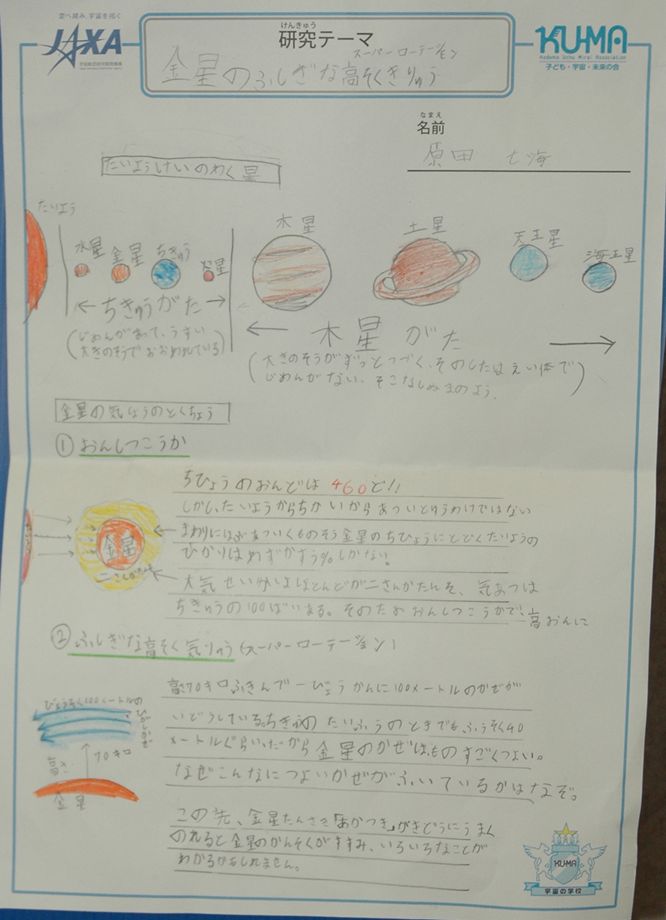 空へ挑み、宇宙を拓く
JAXA
けんきゅう
研究テーマ
スーパーローテーション
金星のふしぎな高そくきりゅう
KU-MA
Kodomo Uchu Mirai Association
子ども・宇宙・未来の会
なまえ
名前
原田 七海
たいようけいのわく星
たいよう
水星
金星
ちきゅう
火星
木星
土星
天王星
海王星
ちきゅうがた
(じめんがあって、うすい
大きのそうでおおわれている)
木星がた
(大きのそうがずっとつづく、そのしたはえい体で
じめんがない、そこなしぬまのよう.
金星の気しょうのとくちょう
① おんしつこうか
ちひょうのおんどは460ど!!
しかし、たいようからちかいからあついというわけではない
まわりにはぶあついくものそう金星のちひょうにとどくたいようの
ひかりはわずかすう%しかない。
大気せいぶんはほとんどが二さんかたんそ、気あつは
ちきゅうの100ばいある。そのためおんしつこうかで、高おんに
金星
② ふしぎな高そく気りゅう(スーパーローテーション)
高さ70キロふきんで一びょうかんに100メートルのかぜが
いどうしている。ちきゅうのたいふうのときでもふうそく40
メートルぐらい、だから金星のかぜはものすごくつよい。
なぜこんなにつよいかぜがふいているかはなぞ。
びょうそく100メートルの
ひがしかぜ
高さ
70キロ
金星
この先、金星たんさき「あかつき」がきどうにうまく
のれると金星のかんそくがすすみ、いろいろなことが
わかるかもしれません。
KU-MA
宇宙の学校